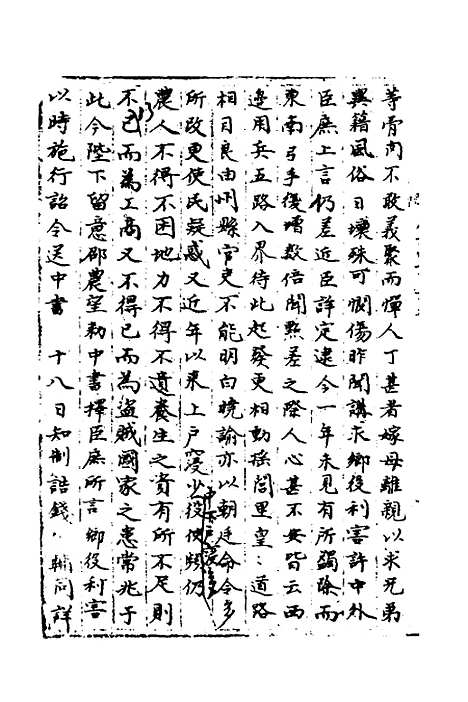 等骨肉不敢義聚而憚人丁甚者嫁母離親以求兄弟
異籍風俗日壞殊可憫傷昨聞講求鄉役利害許中外
臣庶上言仍差近臣詳定逮今一年未見有所蠲除而
東南弓手復增數倍聞點差之際人心甚不安皆云西
邊用兵五路入界待此起發更相動搖閭里皇〻道路
相目良由州縣官吏不能明白曉諭亦以朝廷命令多
所改更使民疑惑又近年以來上戶寖少役使頻仍
農人不得不困地力不得不遺養生之資有所不足則
不已而為工商又不得已而為盜賊國家之患常兆于
此今陛下留意卹農望勑中書擇臣庶所言鄉役利害
以時施行詔令送中書 十八日知制誥錢公輔同詳